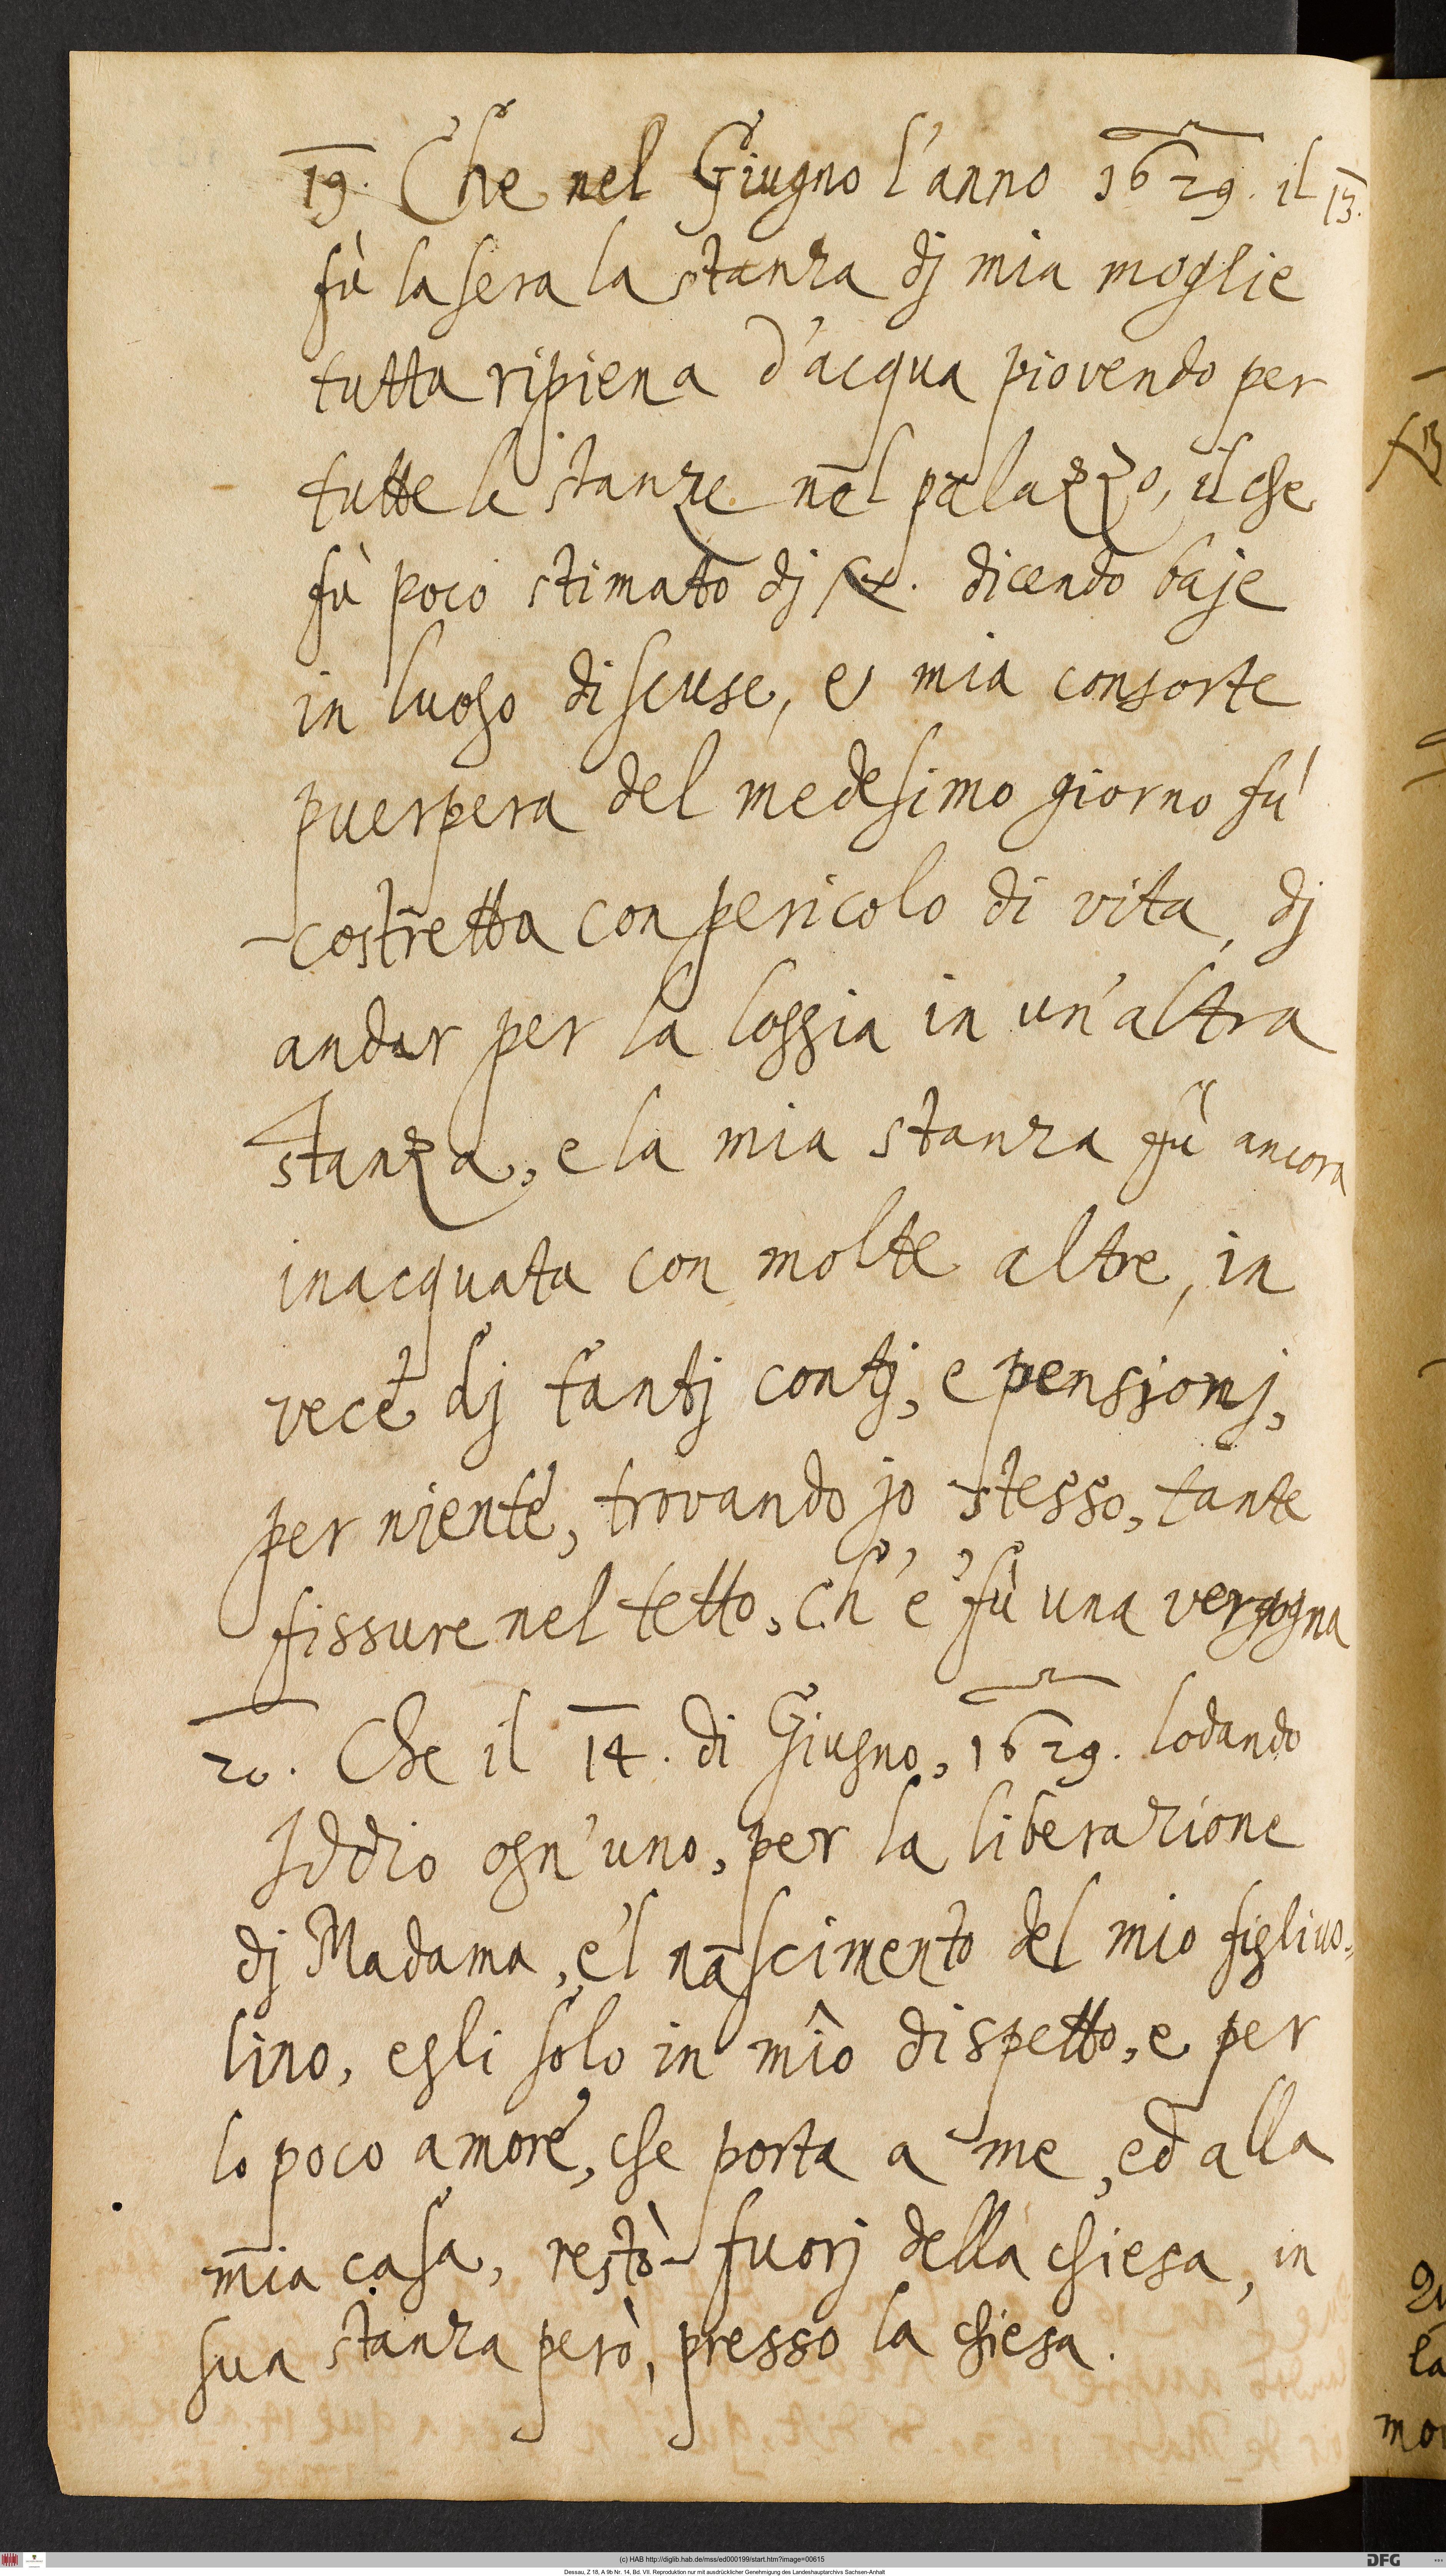 19. Che nel Giugno l'anno 1629. il 13.
fù la sera la stanza dj mia moglie
tutta ripiena d'acqua piovendo per
tutte le stanze nel palazzo, il che
fù poco stimato dj dicendo baje
in luogo di scuse, e mia consorte
puerpera del medesimo giorno fu'
costretta con pericolo di vita, dj
andar per la loggia in un'altra
stanza, e la mia stanza fù ancora
inacquata con molte altre, in
vece dj tantj contj, e pensionj,
per njente, trovando jo stesso, tante
fissure nel tetto, ch'e' fù una vergogna
20. Che il 14. di Giugno, 1629. lodando
Iddio ogn'uno, per la liberazione
dj Madama, e'l nascimento del mio figliuo¬
lino, egli solo in mio dispetto, e per
lo poco amore, che porta a me, ed alla
mia casa, restò fuorj della chiesa, in
sua stanza però, presso la chiesa.
la
mo
(c) HAB http://diglib.hab.de/mss/ed000199/start.htm?image=00615
DFG
Dessau, Z 18, A 9b Nr. 14, Bd. VII. Reproduktion nur mit ausdrücklicher Genehmigung des Landeshauptarchivs Sachsen-Anhalt